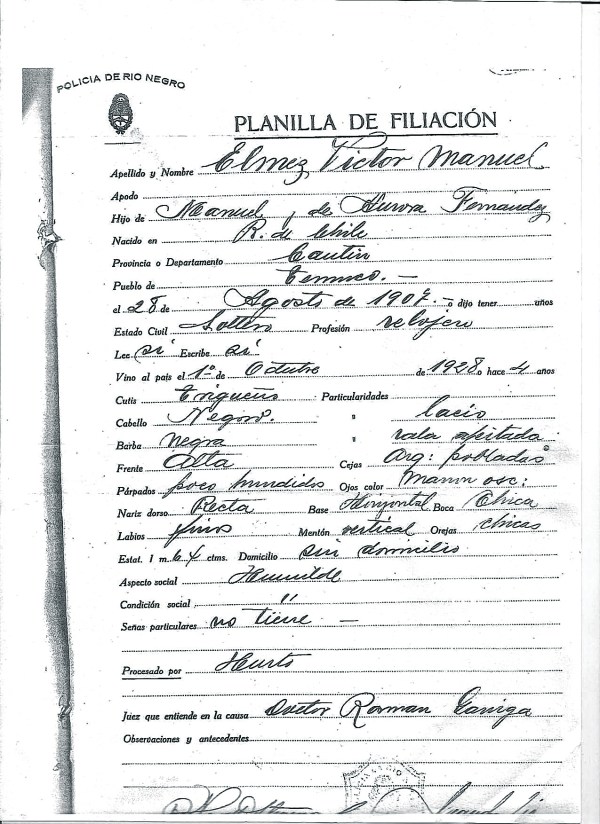 POLICIA DE RIO NEGRO
PLANILLA DE FILIACIÓN
Apellido y Nombre Elmez Victor Manuel
Apodo
Hijo de Manuel y de Aurora Fernandez
Nacido en R. de Chile
Provincia o Departamento Cautin
Pueblo de Temuco. —
el 28 de Agosto de 1907. — o dijo tener años
Estado Civil Soltero Profesión relojero
Lee si Escribe si
Vino al país el 1º de Octubre de 1928 o hace 4 años
Cutis Trigueño Particularidades
Cabello Negro. " lacio
Barba negra " rala afeitada
Frente Alta Cejas Arq: pobladas
Párpados poco hundidos Ojos color Marron osc:
Nariz dorso Recta Base Horizontal Boca Chica
Labios finos Mentón vertical Orejas chicas
Estat. 1 m. 64 ctms. Domicilio sin domicilio
Aspecto social Humilde
Condición social "
Señas particulares no tiene —
Procesado por Hurto
Juez que entiende en la causa Doctor Garriga
Observaciones y antecedentes